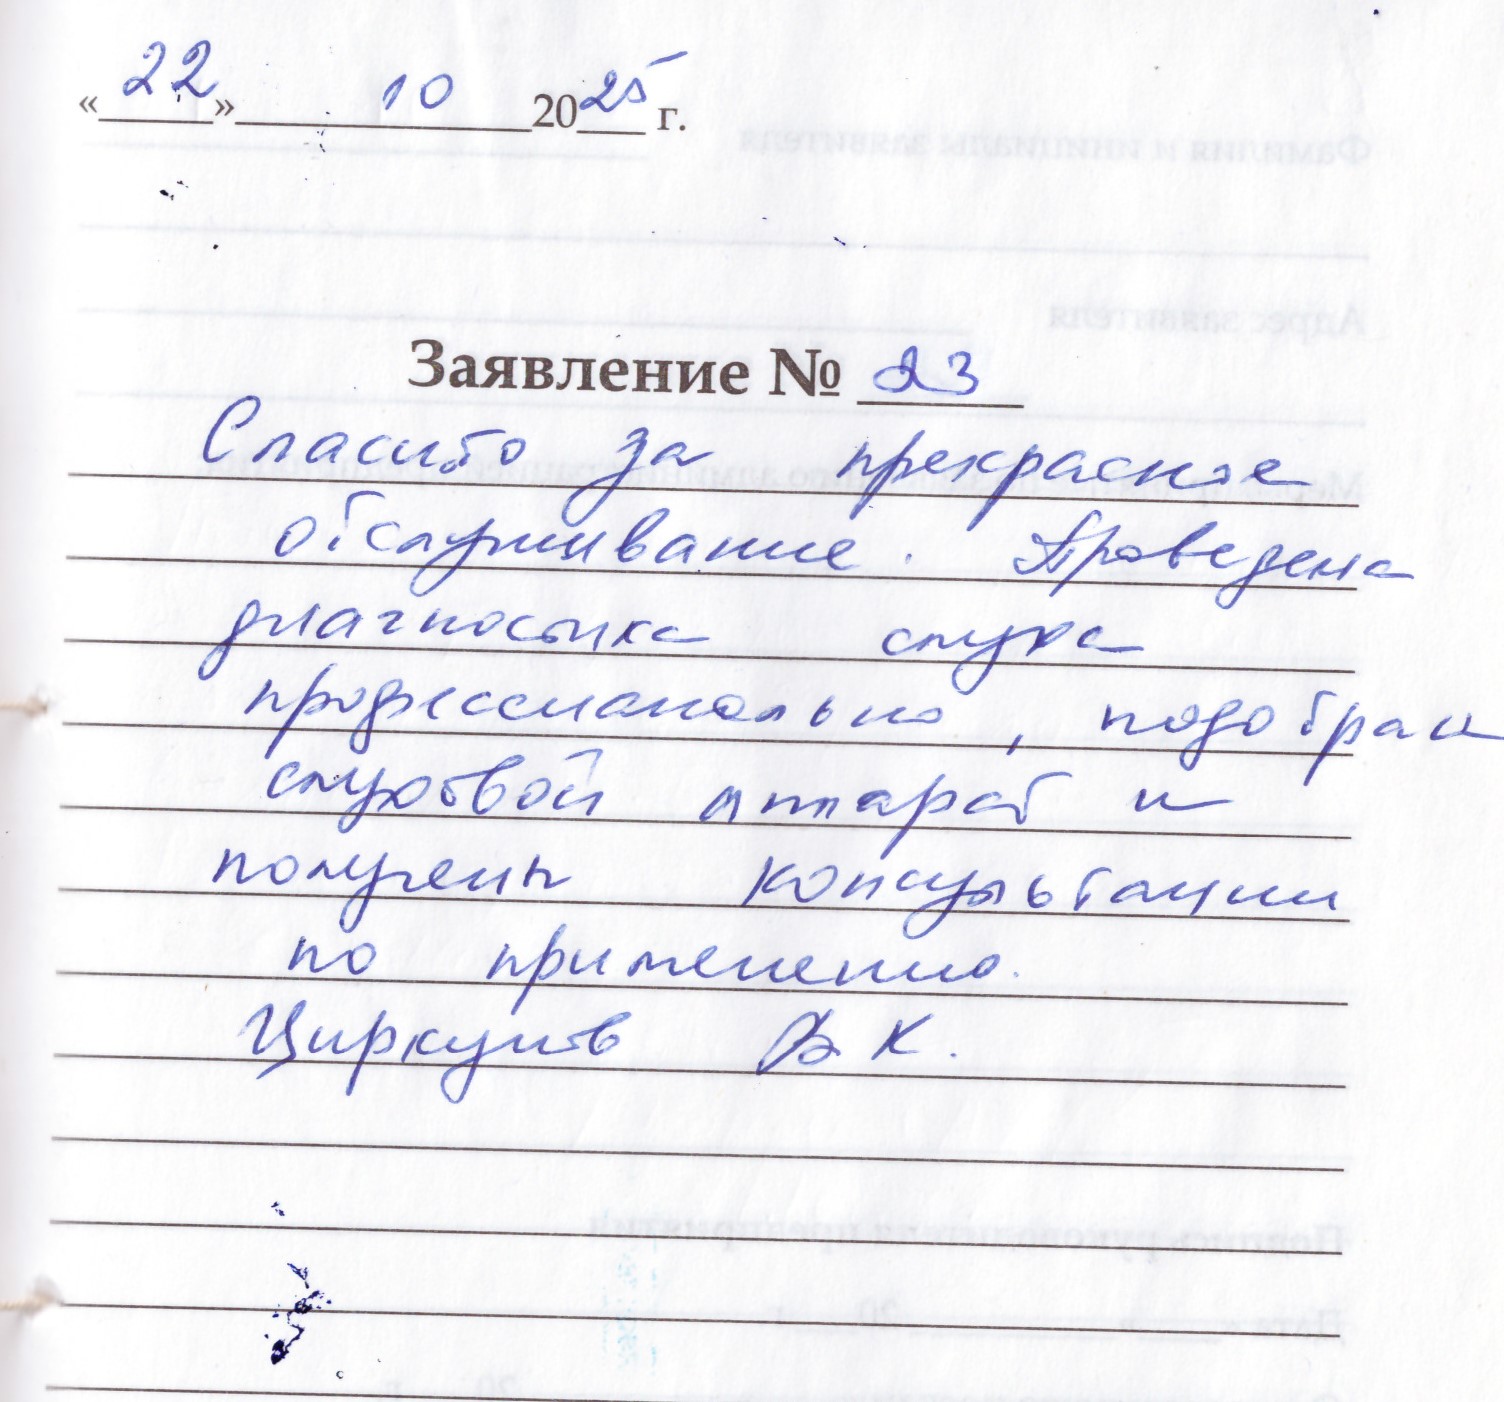 «22» 10 2025 г.
Заявление № 23
Спасибо за прекрасное
обслуживание. Проведена
диагностика слуха
профессионально, подобран
слуховой аппарат и
получены консультации
по применению.
Циркунов В К.